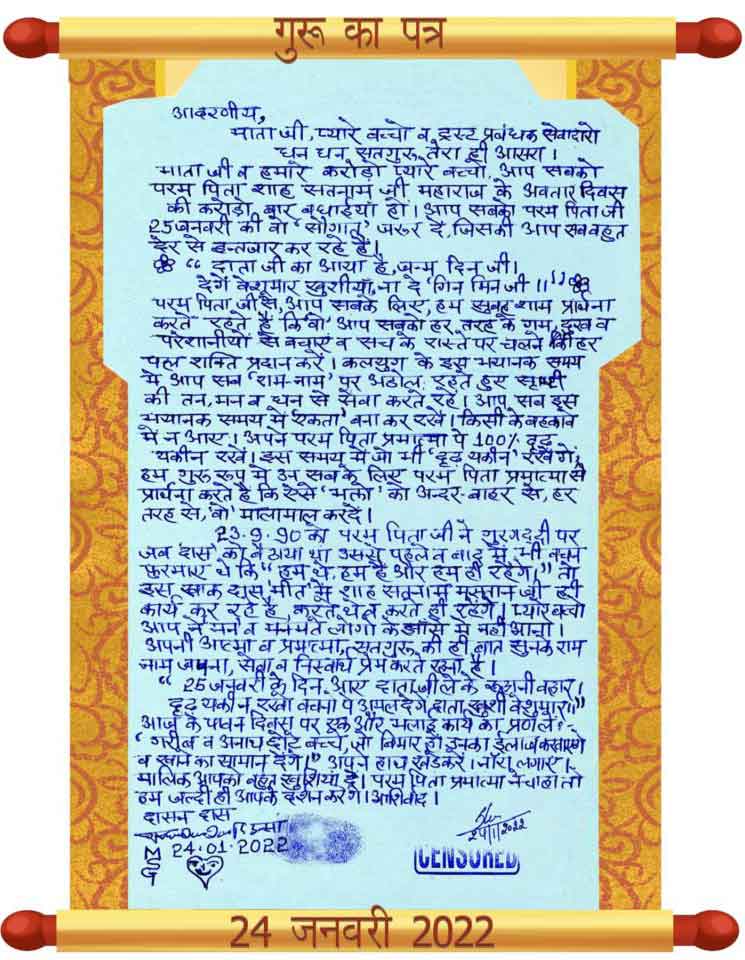 गुरू का पत्र
आदरणीय,
माता जी, प्यारे बच्चो व ट्रस्ट प्रबंधक सेवादारो
धन धन सतगुरू तेरा ही आसरा।
माता जी व हमारे करोड़ो प्यारे बच्चो, आप सबको
परम पिता शाह सतनाम जी महाराज के अवतार दिवस
की करोड़ो बार बधाईयां हो। आप सबको परम पिता जी
25 जनवरी की वो 'सौगात' जरूर दे, जिसकी आप सब बहुत
देर से इन्तजार कर रहे हैं।
"दाता जी का आया है, जन्म दिन जी।
देंगें बेशूमार खुशीयां, ना दे गिन मिन जी।।"
परम पिता जी से, आप सबके लिए, हम सुबह शाम प्रार्थना
करते रहते है कि 'वो' आप सबको हर तरह के गम, दुख व
परेशानीयों से बचाए व सच के रास्ते पर चलने की हर
पल शक्ति प्रदान करें। कलयुग के इस भयानक समय
में आप सब 'राम-नाम' पर अडोल रहते हुए सृष्टी
की तन, मन व धन से सेवा करते रहें। आप सब इस
भयानक समय में 'एकता' बना कर रखें। किसी के बहकावे
में न आएं। अपने परम पिता प्रमात्मा पे 100% दृढ़
यकीन रखें। इस समय में जो भी 'दृढ़ यकीन' रखेंगे,
हम गुरू रूप में उन सबके लिए परम पिता प्रमात्मा से
प्रार्थना करते है कि ऐसे 'भक्तो' को अन्दर-बाहर से, हर
तरह से, 'वो' मालामाल करदें।
23-9-90 को परम पिता जी ने गुरगद्दी पर
जब 'दास' को बैठाया था उससे पहले व बाद में भी वचन
फरमाए थे कि "हम थे, हम हैं और हम ही रहेंगे।" तो
इस खाक दास 'मीत' में शाह सतनाम, मस्तान जी ही
कार्य कर रहे हैं, करते थे व करते ही रहेंगे। प्यारे बच्चो
आप ने मन व मनमते लोगो के झांसे में नहीं आना।
अपनी आत्मा व प्रमात्मा, सतगुरू की ही बात सुनके राम
नाम जपना, सेवा व निस्वार्थ प्रेम करते रहना है।
"25 जनवरी के दिन आए दाता जी ले के रूहानी बहार।
दृढ़ यकीन रखो वचनो पे अमल देंगे दाता खुशी बेशुमार।।"
आज के पावन दिवस पर एक और भलाई कार्य का प्रण लें :-
"गरीब व अनाथ छोटे बच्चे, जो बिमार हों उनका ईलाज करवाएंगे
व खाने का सामान देंगे।" अपने हाथ खड़े करें। नारा लगाएं।
मालिक आपको बहुत खुशियां दें। परम पिता प्रमात्मा ने चाहा तो
हम जल्दी ही आपके दर्शन करेंगे। आशिर्वाद।
दासन दास
24.01.2022
24/1/2022
MSG
CENSORED
24 जनवरी 2022